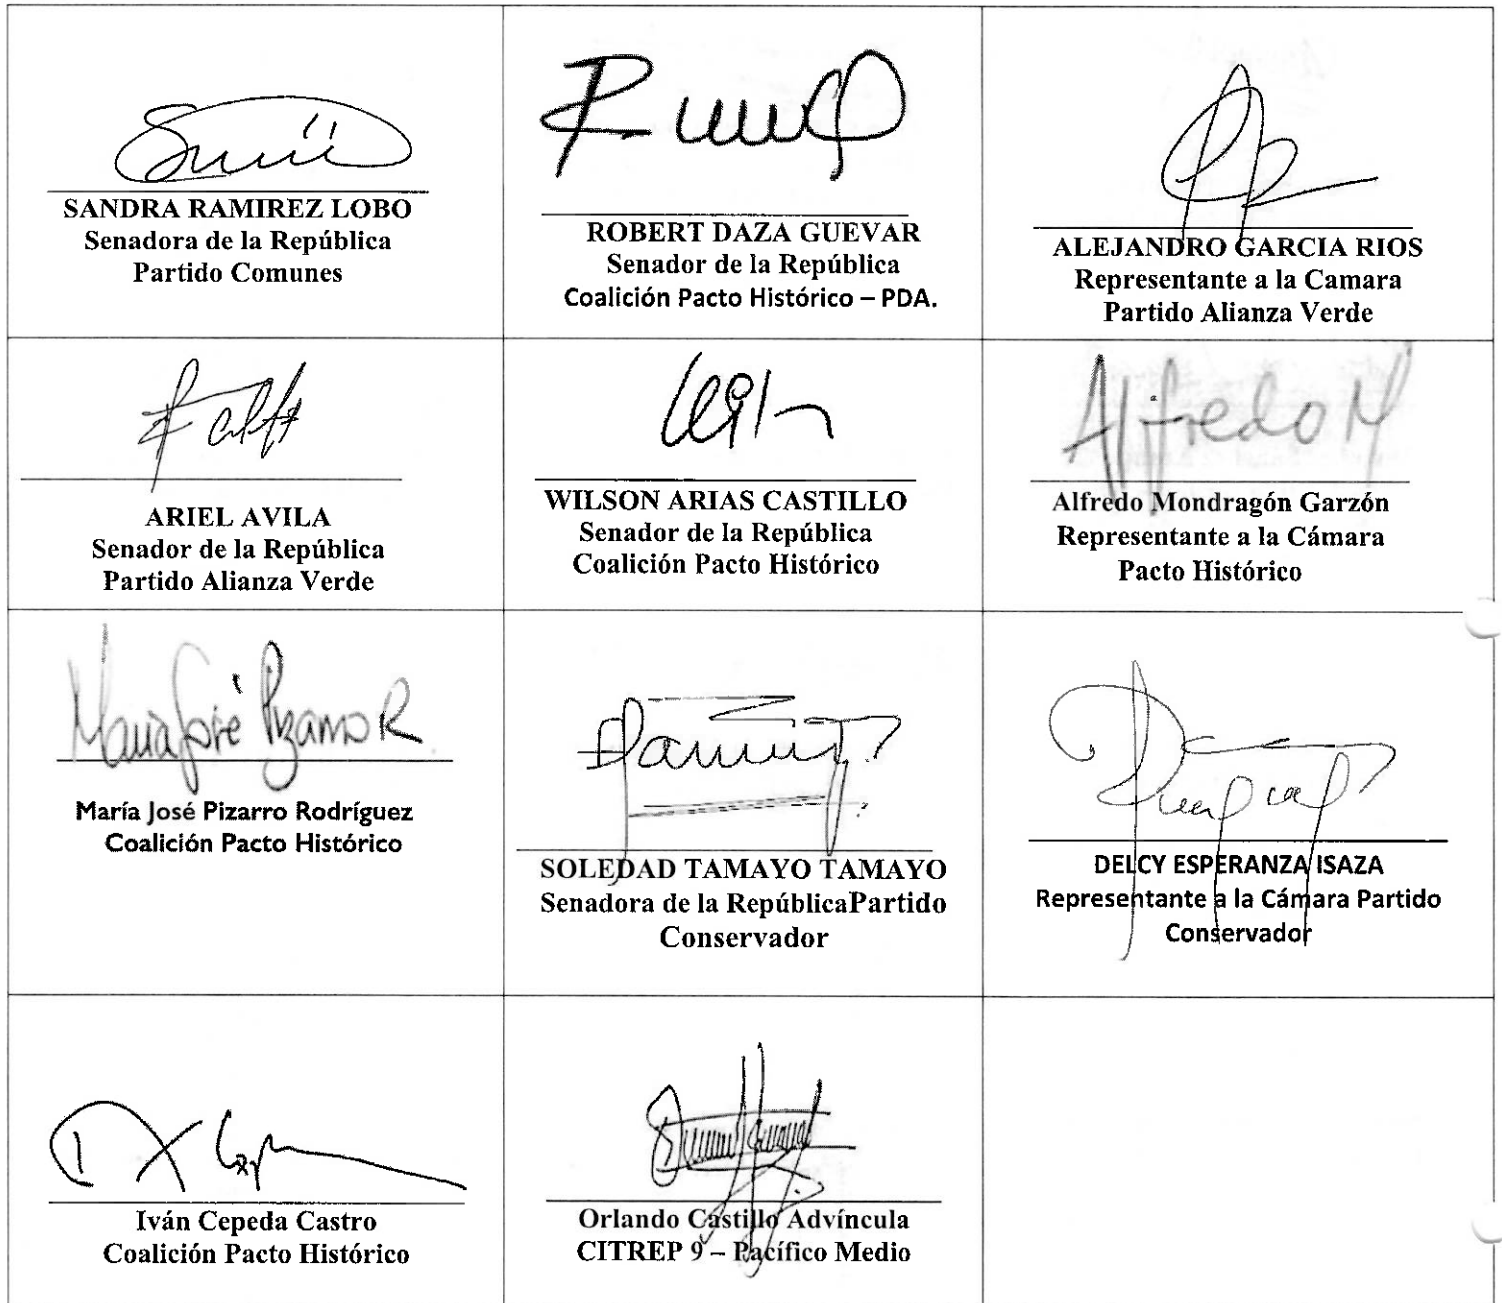 SANDRA RAMIREZ LOBO
Senadora de la República
Partido Comunes
ROBERT DAZA GUEVAR
Senador de la República
Coalición Pacto Histórico – PDA.
ALEJANDRO GARCIA RIOS
Representante a la Camara
Partido Alianza Verde
ARIEL AVILA
Senador de la República
Partido Alianza Verde
WILSON ARIAS CASTILLO
Senador de la República
Coalición Pacto Histórico
Alfredo M
Alfredo Mondragón Garzón
Representante a la Cámara
Pacto Histórico
María José Pizarro R.
María José Pizarro Rodríguez
Coalición Pacto Histórico
SOLEDAD TAMAYO TAMAYO
Senadora de la RepúblicaPartido
Conservador
DELCY ESPERANZA ISAZA
Representante a la Cámara Partido
Conservador
Iván Cepeda Castro
Coalición Pacto Histórico
Orlando Castillo Advíncula
CITREP 9 – Pacífico Medio